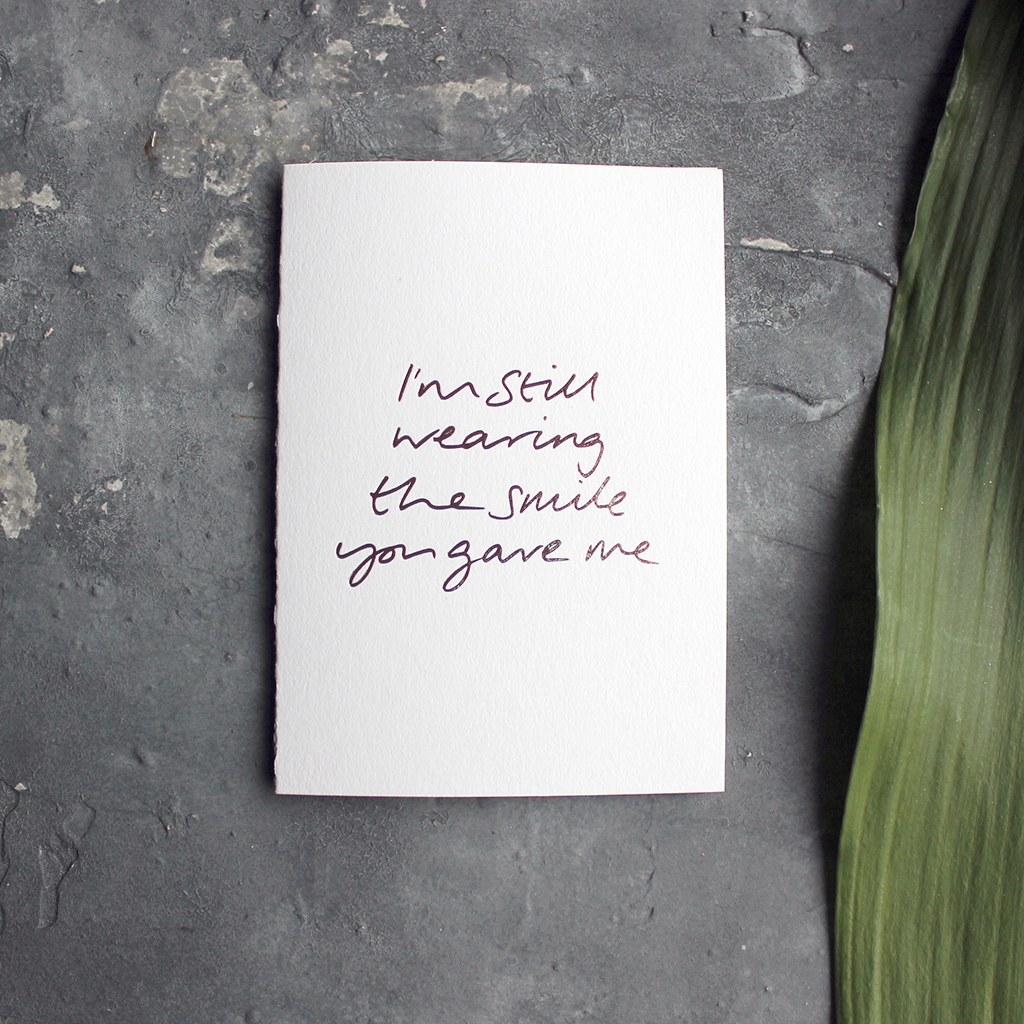 I'm still
wearing
the smile
you gave me